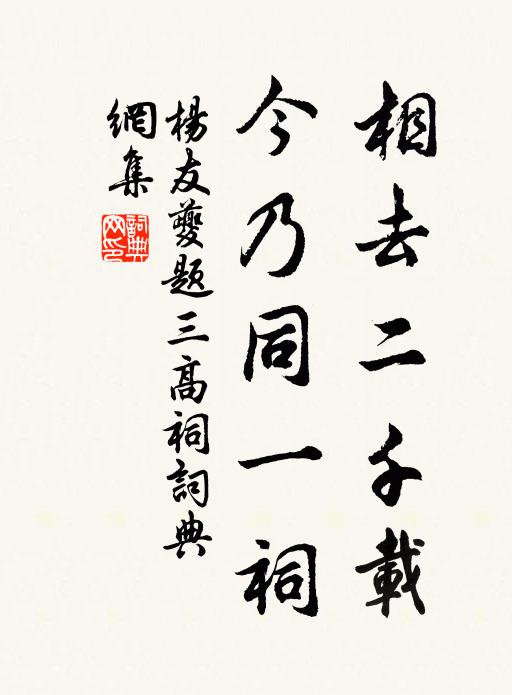 相去二千載
今乃同一祠
楊友夔題三高祠詞典
網集
詞典
网印